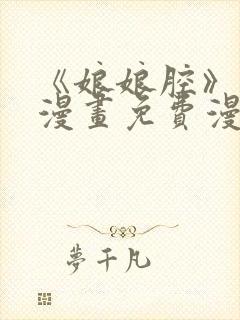 《娘娘腔》
漫畫免費漫
夢千凡